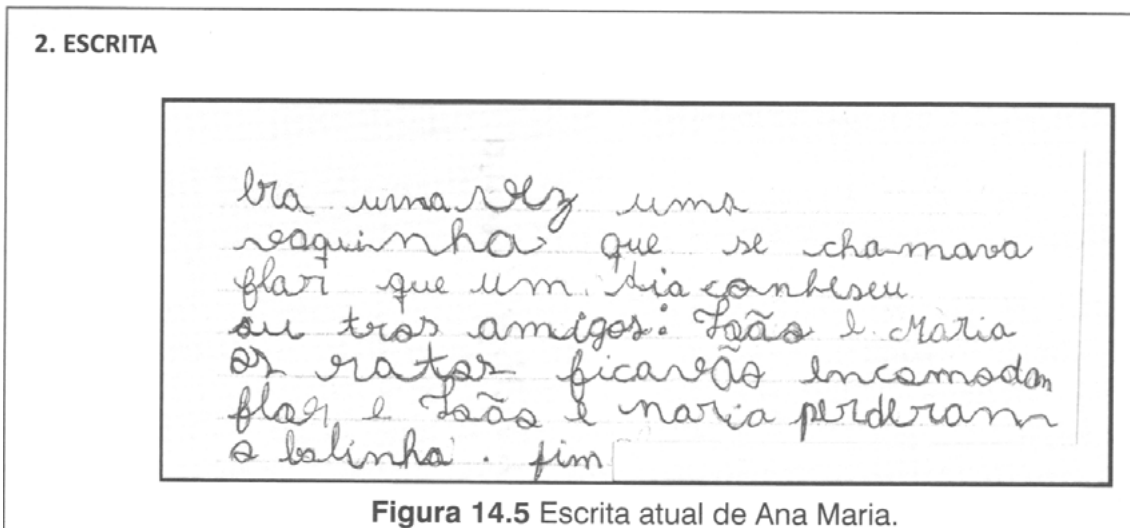 2. ESCRITA
Era uma vez uma
vaquinha que se chamava
flor que um dia conheseu
ou tros amigos: João e Maria
os ratos ficavão encomodan
flor e João e naria perderam
a bolinha. fim
Figura 14.5 Escrita atual de Ana Maria.